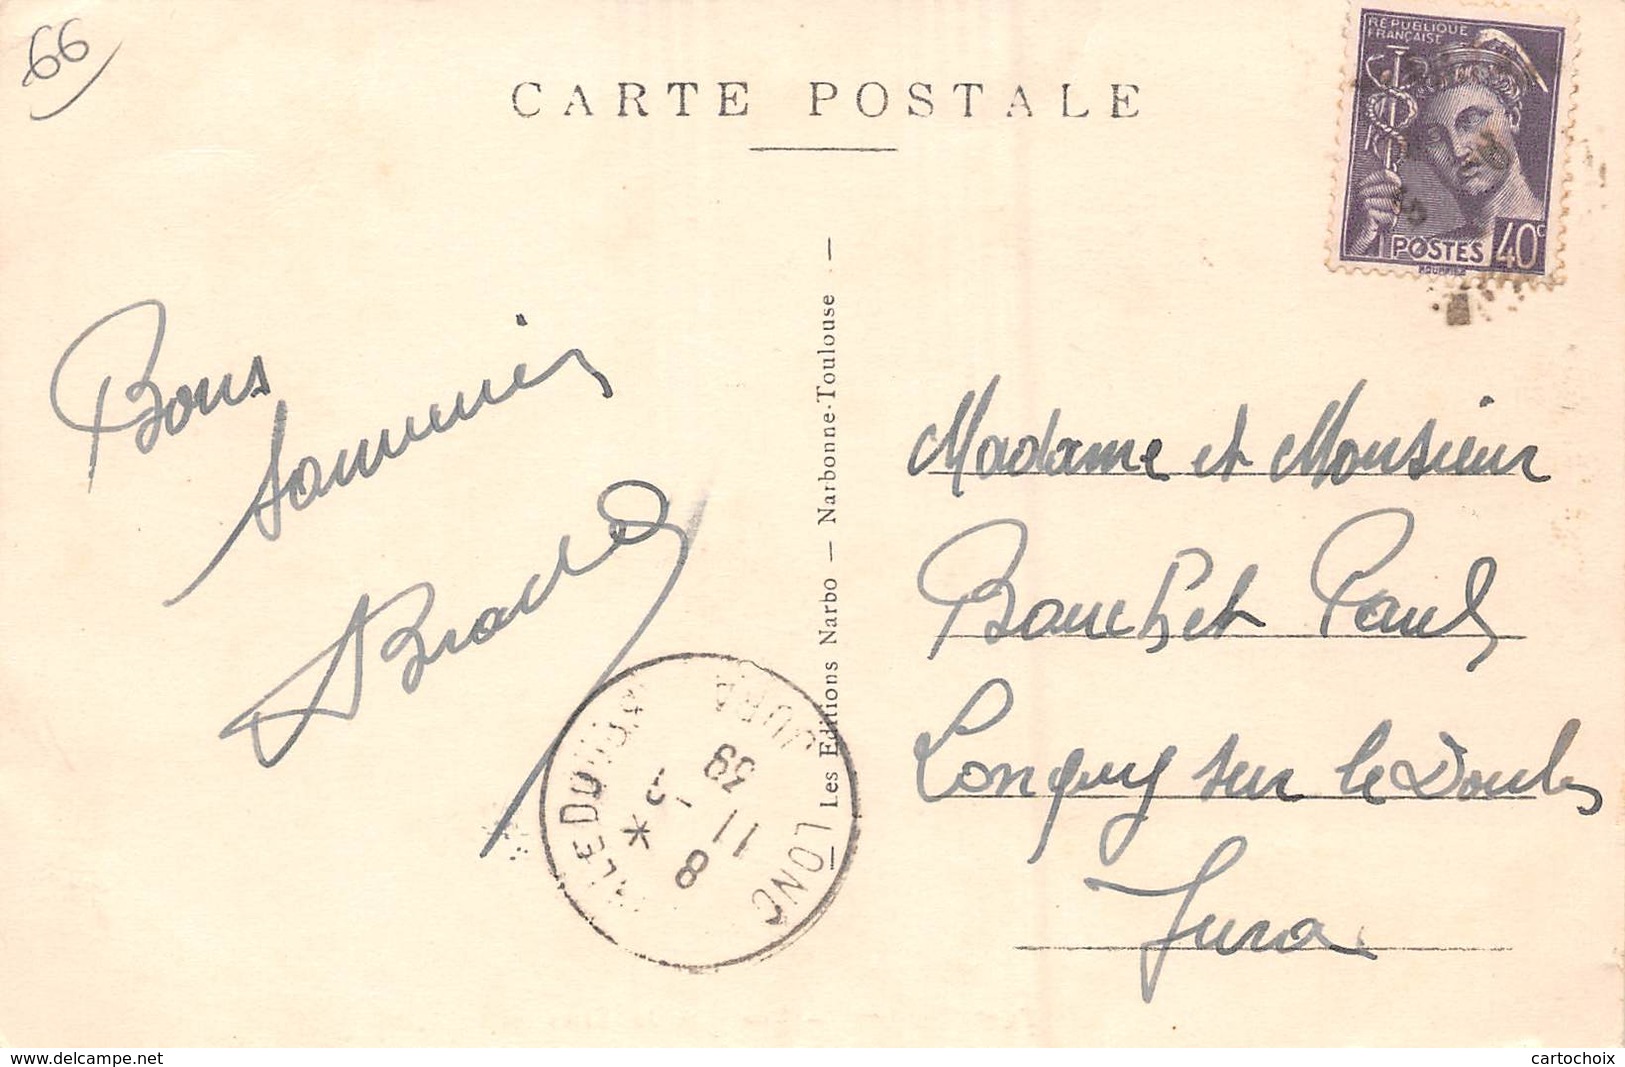 66
CARTE POSTALE
REPUBLIQUE
FRANÇAISE
POSTES 40c
Bons
Les Editions Narbo — Narbonne-Toulouse . —
Madame et Monsieur
Bauchet Paul
Longwy sur le Doubs
Jura
JURA
8
11
39
*
www.delcampe.net
cartochoix